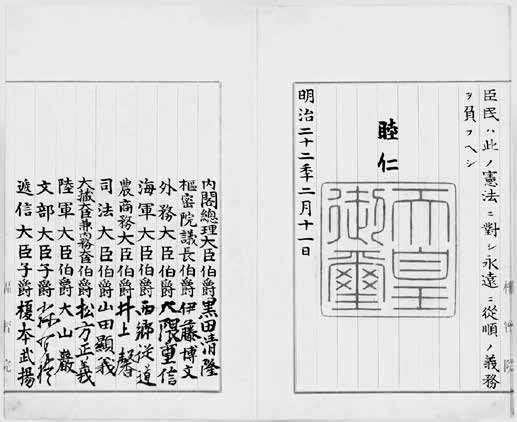 臣民ハ此ノ憲法ニ對シ永遠ニ從順ノ義務
ヲ負フヘシ
睦仁
天皇
御璽
明治二十二年二月十一日
內閣總理大臣伯爵黒田清隆
樞密院議長伯爵伊藤博文
外務大臣伯爵大隈重信
海軍大臣伯爵西鄕從道
農商務大臣伯爵井上馨
司法大臣伯爵山田顯義
大藏大臣兼內務大臣伯爵松方正義
陸軍大臣伯爵大山巖
文部大臣子爵森有禮
遞信大臣子爵榎本武揚
樞密院